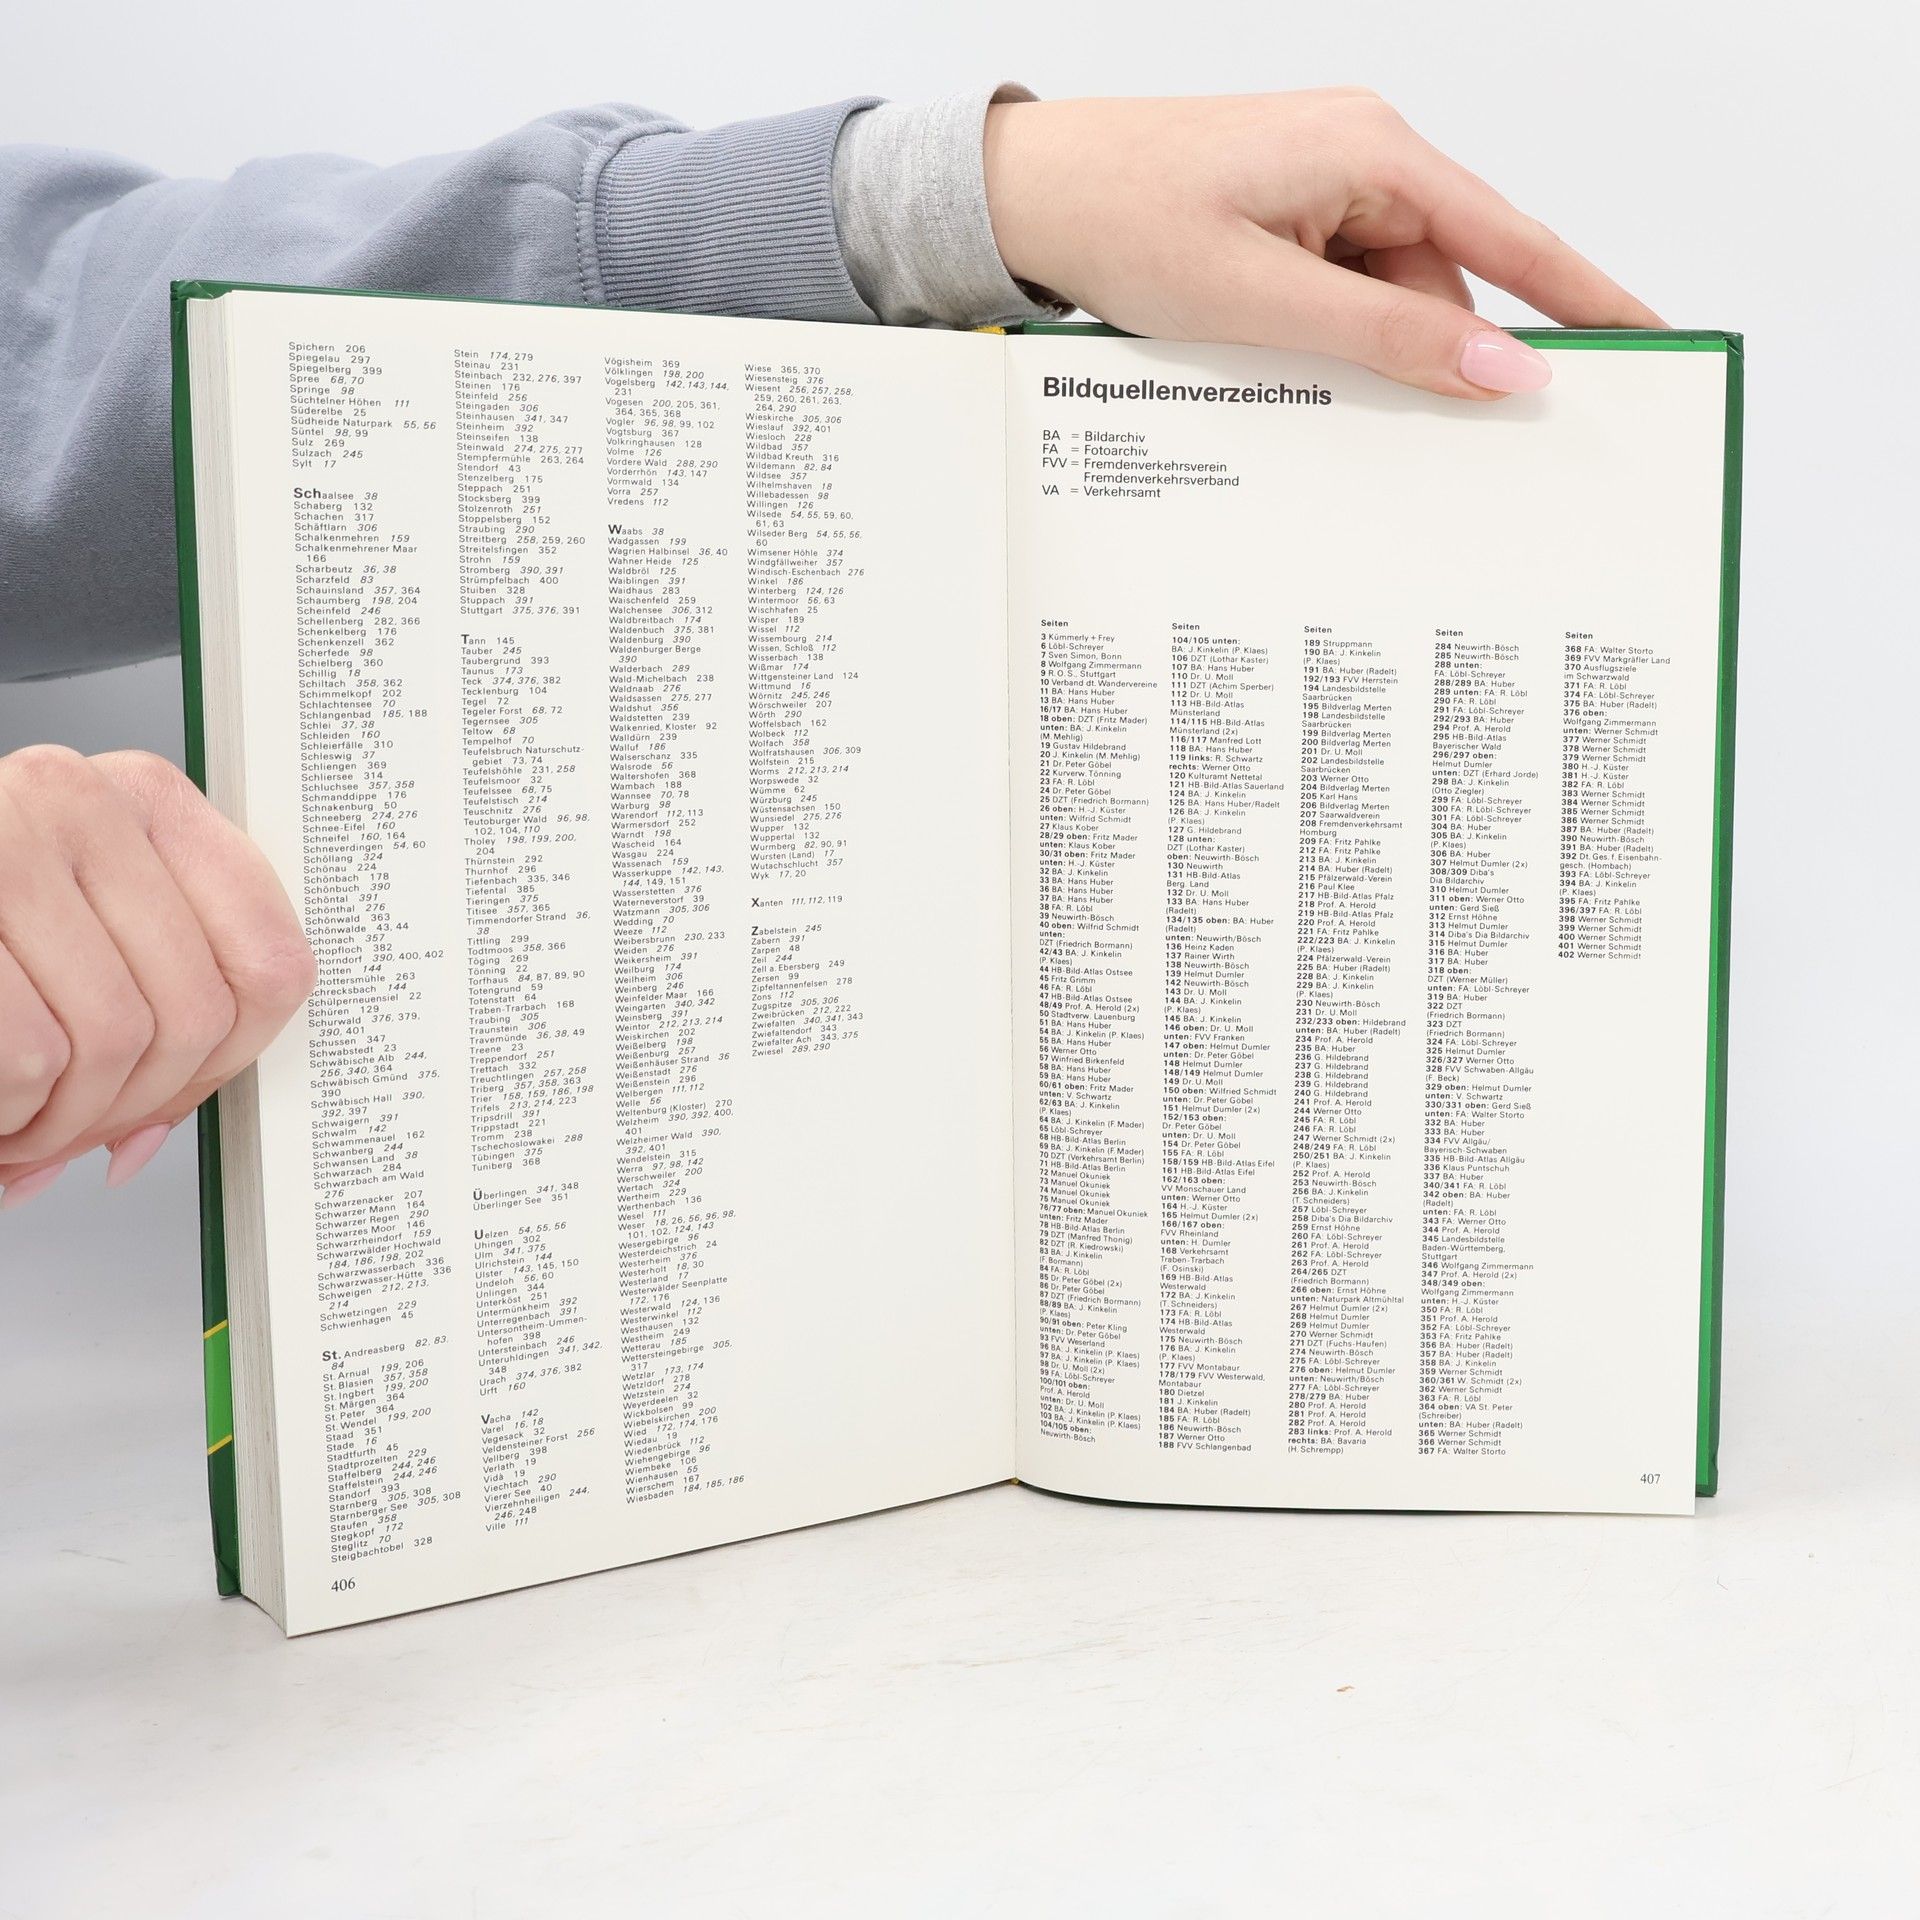 Spichern 206
Spiegelau 297
Spiegelberg 399
Spree 68, 70
Springe 98
Süchtelner Höhen 111
Süderelbe 25
Südheide Naturpark 55, 56
Süntel 98, 99
Sulz 269
Sulzach 245
Sylt 17
Schaalsee 38
Schaberg 132
Schachen 317
Schäftlarn 306
Schalkenmehren 159
Schalkenmehrener Maar
166
Scharbeutz 36, 38
Scharzfeld 83
Schauinsland 357, 364
Schaumberg 198, 204
Scheinfeld 246
Schellenberg 282, 366
Schenkelberg 176
Schenkenzell 362
Scherfede 98
Schielberg 360
Schillig 18
Schiltach 358, 362
Schimmelkopf 202
Schlachtensee 70
Schlangenbad 185, 188
Schlei 37, 38
Schleiden 160
Schleierfälle 310
Schleswig 37
Schliengen 369
Schliersee 314
Schluchsee 357, 358
Schmanddippe 176
Schnakenburg 50
Schneeberg 274, 276
Schnee-Eifel 160
Schneifel 160, 164
Schneverdingen 54, 60
Schöllang 324
Schönau 224
Schönbach 178
Schönbuch 390
Schöntal 391
Schönthal 276
Schönwald 363
Schönwalde 43, 44
Schonach 357
chopfloch 382
chorndorf 390, 400, 402
chotten 144
chottersmühle 263
Schrecksbach 144
Schülperneuensiel 22
Schüren 129
Schurwald 376, 379,
390, 401
Schussen 347
Schwabstedt 23
Schwäbische Alb 244,
256, 340, 364
Schwäbisch Gmünd 375,
390
Schwäbisch Hall 390,
392, 397
Schwaigern 391
Schwalm 142
Schwammenauel 162
Schwanberg 244
Schwansen Land 38
Schwarzach 284
Schwarzbach am Wald
276
Schwarzenacker 207
Schwarzer Mann 164
Schwarzer Regen 290
Schwarzes Moor 146
Schwarzrheindorf 159
Schwarzwälder Hochwald
184, 186, 198, 202
Schwarzwasserbach 336
Schwarzwasser-Hütte 336
Schweigen 212, 213,
214
Schwetzingen 229
Schwienhagen 45
St. Andreasberg 82, 83,
84
St. Arnual 199, 206
St. Blasien 357, 358
St. Ingbert 199, 200
St. Märgen 364
St. Peter 364
St. Wendel 199, 200
Staad 351
Stade 16
Stadtfurth 45
Stadtprozelten 229
Staffelberg 244, 246
Staffelstein 244, 246
Standorf 393
Starnberg 305, 308
Starnberger See 305, 308
Staufen 358
Stegkopf 172
Steglitz 70
Steigbachtobel 328
Stein 174, 279
Steinau 231
Steinbach 232, 276, 397
Steinen 176
Steinfeld 256
Steingaden 306
Steinhausen 341, 347
Steinheim 392
Steinseifen 138
Steinwald 274, 275, 277
Stempfermühle 263, 264
Stendorf 43
Stenzelberg 175
Steppach 251
Stocksberg 399
Stolzenroth 251
Stoppelsberg 152
Straubing 290
Streitberg 258, 259, 260
Streitelsfingen 352
Strohn 159
Stromberg 390, 391
Strümpfelbach 400
Stuiben 328
Stuppach 391
Stuttgart 375, 376, 391
Tann 145
Tauber 245
Taubergrund 393
Taunus 173
Teck 374, 376, 382
Tecklenburg 104
Tegel 72
Tegeler Forst 68, 72
Tegernsee 305
Teltow 68
Tempelhof 70
Teufelsbruch Naturschutz-
gebiet 73, 74
Teufelshöhle 231, 258
Teufelsmoor 32
Teufelssee 68, 75
Teufelstisch 214
Teuschnitz 276
Teutoburger Wald 96, 98,
102, 104, 110
Tholey 198, 199, 200,
204
Thürnstein 292
Thurnhof 296
Tiefenbach 335, 346
Tiefental 385
Tieringen 375
Titisee 357, 365
Timmendorfer Strand 36,
38
Tittling 299
Todtmoos 358, 366
Töging 269
Tönning 22
Torfhaus 84, 87, 89, 90
Totengrund 59
Totenstatt 64
Traben-Trarbach 168
Traubing 305
Traunstein 306
Travemünde 36, 38, 49
Treene 23
Treppendorf 251
Trettach 332
Treuchtlingen 257, 258
Triberg 357, 358, 363
Trier 158, 159, 186, 198
Trifels 213, 214, 223
Tripsdrill 391
Trippstadt 221
Tromm 238
Tschechoslowakei 288
Tübingen 375
Tuniberg 368
Überlingen 341, 348
Überlinger See 351
Uelzen 54, 55, 56
Uhingen 302
Ulm 341, 375
Ulrichstein 144
Ulster 143, 145, 150
Undeloh 56, 60
Unlingen 344
Unterköst 251
Untermünkheim 392
Unterregenbach 391
Untersontheim-Ummen-
hofen 398
Untersteinbach 246
Unteruhldingen 341, 342,
348
Urach 374, 376, 382
Urft 160
Vacha 142
Varel 16, 18
Vegesack 32
Veldensteiner Forst 256
Vellberg 398
Verlath 19
Vidå 19
Viechtach 290
Vierer See 40
Vierzehnheiligen 244,
246, 248
Ville 111
Vögisheim 369
Völklingen 198, 200
Vogelsberg 142, 143, 144,
231
Vogesen 200, 205, 361,
364, 365, 368
Vogler 96, 98, 99, 102
Vogtsburg 367
Volkringhausen 128
Volme 126
Vordere Wald 288, 290
Vorderrhön 143, 147
Vormwald 134
Vorra 257
Vredens 112
Waabs 38
Wadgassen 199
Wagrien Halbinsel 36, 40
Wahner Heide 125
Waldbröl 125
Waiblingen 391
Waidhaus 283
Waischenfeld 259
Walchensee 306, 312
Waldbreitbach 174
Waldenbuch 375, 381
Waldenburg 390
Waldenburger Berge
390
Walderbach 289
Wald-Michelbach 238
Waldnaab 276
Waldsassen 275, 277
Waldshut 356
Waldstetten 239
Walkenried, Kloster 92
Walldürn 239
Walluf 186
Walserschanz 335
Walsrode 56
Waltershofen 368
Wambach 188
Wannsee 70, 78
Warburg 98
Warendorf 112, 113
Warmersdorf 252
Warndt 198
Wascheid 164
Wasgau 224
Wassenach 159
Wasserkuppe 142, 143,
144, 149, 151
Wasserstetten 376
Waterneverstorf 39
Watzmann 305, 306
Wedding 70
Weeze 112
Weibersbrunn 230, 233
Weiden 276
Weikersheim 391
Weilburg 174
Weilheim 306
Weinberg 246
Weinfelder Maar 166
Weingarten 340, 342
Weinsberg 391
Weintor 212, 213, 214
Weiskirchen 202
Weißelberg 198
Weißenburg 257
Weißenhäuser Strand 36
Weißenstadt 276
Weißenstein 296
Welbergen 111, 112
Welle 56
Weltenburg (Kloster) 270
Welzheim 390, 392, 400,
401
Welzheimer Wald 390,
392, 401
Wendelstein 315
Werra 97, 98, 142
Werschweiler 200
Wertach 324
Wertheim 229
Werthenbach 136
Wesel 111
Weser 18, 26, 56, 96, 98,
101, 102, 124, 143
Wesergebirge 96
Westerdeichstrich 24
Westerheim 376
Westerholt 18, 30
Westerland 17
Westerwälder Seenplatte
172, 176
Westerwald 124, 136
Westerwinkel 112
Westhausen 132
Westheim 249
Wetterau 185
Wettersteingebirge 305,
317
Wetzlar 173, 174
Wetzldorf 278
Wetzstein 274
Weyerdeelen 32
Wickbolsen 99
Wiebelskirchen 200
Wied 172, 174, 176
Wiedau 19
Wiedenbrück 112
Wiehengebirge 96
Wiembeke 106
Wienhausen 55
Wierschem 167
Wiesbaden 184, 185, 186
Wiese 365, 370
Wiesensteig 376
Wiesent 256, 257, 258,
259, 260, 261, 263,
264, 290
Wieskirche 305, 306
Wieslauf 392, 401
Wiesloch 228
Wildbad 357
Wildbad Kreuth 316
Wildemann 82, 84
Wildsee 357
Wilhelmshaven 18
Willebadessen 98
Willingen 126
Wilsede 54, 55, 59, 60,
61, 63
Wilseder Berg 54, 55, 56,
60
Wimsener Höhle 374
Windgfällweiher 357
Windisch-Eschenbach 276
Winkel 186
Winterberg 124, 126
Wintermoor 56, 63
Wischhafen 25
Wisper 189
Wissel 112
Wissembourg 214
Wissen, Schloß 112
Wisserbach 138
Wißmar 174
Wittgensteiner Land 124
Wittmund 16
Wörnitz 245, 246
Wörschweiler 207
Wörth 290
Woffelsbach 162
Wolbeck 112
Wolfach 358
Wolfratshausen 306, 309
Wolfstein 215
Worms 212, 213, 214
Worpswede 32
Wümme 62
Würzburg 245
Wüstensachsen 150
Wunsiedel 275, 276
Wupper 132
Wuppertal 132
Wurmberg 82, 90, 91
Wursten (Land) 17
Wutachschlucht 357
Wyk 17, 20
Xanten 111, 112, 119
Zabelstein 245
Zabern 391
Zarpen 48
Zeil 244
Zell a. Ebersberg 249
Zersen 99
Zipfeltannenfelsen 278
Zons 112
Zugspitze 305, 306
Zweibrücken 212, 222
Zwiefalten 340, 341, 343
Zwiefaltendorf 343
Zwiefalter Ach 343, 375
Zwiesel 289, 290
406
Bildquellenverzeichnis
BA = Bildarchiv
FA = Fotoarchiv
FVV = Fremdenverkehrsverein
Fremdenverkehrsverband
VA = Verkehrsamt
Seiten
3 Kümmerly + Frey
6 Löbl-Schreyer
7 Sven Simon, Bonn
8 Wolfgang Zimmermann
9 R.O.S., Stuttgart
10 Verband dt. Wandervereine
11 BA: Hans Huber
13 BA: Hans Huber
16/17 BA: Hans Huber
18 oben: DZT (Fritz Mader)
unten: BA: J. Kinkelin
(M. Mehlig)
19 Gustav Hildebrand
20 J. Kinkelin (M. Mehlig)
21 Dr. Peter Göbel
22 Kurverw. Tönning
23 FA: R. Löbl
24 Dr. Peter Göbel
25 DZT (Friedrich Bormann)
26 oben: H.-J. Küster
unten: Wilfrid Schmidt
27 Klaus Kober
28/29 oben: Fritz Mader
unten: Klaus Kober
30/31 oben: Fritz Mader
unten: H.-J. Küster
32 BA: J. Kinkelin
33 BA: Hans Huber
36 BA: Hans Huber
37 BA: Hans Huber
38 FA: R. Löbl
39 Neuwirth-Bösch
40 oben: Wilfrid Schmidt
unten:
DZT (Friedrich Bormann)
42/43 BA: J. Kinkelin
(P. Klaes)
44 HB-Bild-Atlas Ostsee
45 Fritz Grimm
46 FA: R. Löbl
47 HB-Bild-Atlas Ostsee
48/49 Prof. A. Herold (2x)
50 Stadtverw. Lauenburg
51 BA: Hans Huber
54 BA: J. Kinkelin (P. Klaes)
55 BA: Hans Huber
56 Werner Otto
57 Winfried Birkenfeld
58 BA: Hans Huber
59 BA: Hans Huber
60/61 oben: Fritz Mader
unten: V. Schwartz
62/63 BA: J. Kinkelin
(P. Klaes)
64 BA: J. Kinkelin (F. Mader)
65 Löbl-Schreyer
68 HB-Bild-Atlas Berlin
69 BA: J. Kinkelin (F. Mader)
70 DZT (Verkehrsamt Berlin)
71 HB-Bild-Atlas Berlin
72 Manuel Okuniek
73 Manuel Okuniek
74 Manuel Okuniek
75 Manuel Okuniek
76/77 oben: Manuel Okuniek
unten: Fritz Mader
78 HB-Bild-Atlas Berlin
79 DZT (Manfred Thonig)
82 DZT (R. Kiedrowski)
83 BA: J. Kinkelin
(F. Bormann)
84 FA: R. Löbl
85 Dr. Peter Göbel (2x)
86 Dr. Peter Göbel
87 DZT (Friedrich Bormann)
88/89 BA: J. Kinkelin
(P. Klaes)
90/91 oben: Peter Kling
unten: Dr. Peter Göbel
93 FVV Weserland
96 BA: J. Kinkelin (P. Klaes)
97 BA: J. Kinkelin (P. Klaes)
98 Dr. U. Moll (2x)
99 FA: Löbl-Schreyer
100/101 oben:
Prof. A. Herold
unten: Dr. U. Moll
102 BA: J. Kinkelin (P. Klaes)
103 BA: J. Kinkelin (P. Klaes)
104/105 oben:
Neuwirth-Bösch
Seiten
104/105 unten:
BA: J. Kinkelin (P. Klaes)
106 DZT (Lothar Kaster)
107 BA: Hans Huber
110 Dr. U. Moll
111 DZT (Achim Sperber)
112 Dr. U. Moll
113 HB-Bild-Atlas
Münsterland
114/115 HB-Bild-Atlas
Münsterland (2x)
116/117 Manfred Lott
118 BA: Hans Huber
119 links: R. Schwartz
rechts: Werner Otto
120 Kulturamt Nettetal
121 HB-Bild-Atlas Sauerland
124 BA: J. Kinkelin
125 BA: Hans Huber/Radelt
126 BA: J. Kinkelin
(P. Klaes)
127 G. Hildebrand
128 unten:
DZT (Lothar Kaster)
oben: Neuwirth-Bösch
130 Neuwirth
131 HB-Bild-Atlas
Berg. Land
132 Dr. U. Moll
133 BA: Hans Huber
(Radelt)
134/135 oben: BA: Huber
(Radelt)
unten: Neuwirth/Bösch
136 Heinz Kaden
137 Rainer Wirth
138 Neuwirth-Bösch
139 Helmut Dumler
142 Neuwirth-Bösch
143 Dr. U. Moll
144 BA: J. Kinkelin
(P. Klaes)
145 BA: J. Kinkelin
146 oben: Dr. U. Moll
unten: FVV Franken
147 oben: Helmut Dumler
unten: Dr. Peter Göbel
148 Helmut Dumler
148/149 Helmut Dumler
149 Dr. U. Moll
150 oben: Wilfried Schmidt
unten: Dr. Peter Göbel
151 Helmut Dumler (2x)
152/153 oben:
Dr. Peter Göbel
unten: Dr. U. Moll
154 Dr. Peter Göbel
155 FA: R. Löbl
158/159 HB-Bild-Atlas Eifel
161 HB-Bild-Atlas Eifel
162/163 oben:
VV Monschauer Land
unten: Werner Otto
164 H.-J. Küster
165 Helmut Dumler (2x)
166/167 oben:
FVV Rheinland
unten: H. Dumler
168 Verkehrsamt
Traben-Trarbach
(F. Osinski)
169 HB-Bild-Atlas
Westerwald
172 BA: J. Kinkelin
(T. Schneiders)
173 FA: R. Löbl
174 HB-Bild-Atlas
Westerwald
175 Neuwirth-Bösch
176 BA: J. Kinkelin
(P. Klaes)
177 FVV Montabaur
178/179 FVV Westerwald,
Montabaur
180 Dietzel
181 J. Kinkelin
184 BA: Huber (Radelt)
185 FA: R. Löbl
186 Neuwirth-Bösch
187 Werner Otto
188 FVV Schlangenbad
Seiten
189 Struppmann
190 BA: J. Kinkelin
(P. Klaes)
191 BA: Huber (Radelt)
192/193 FVV Herrstein
194 Landesbildstelle
Saarbrücken
195 Bildverlag Merten
198 Landesbildstelle
Saarbrücken
199 Bildverlag Merten
200 Bildverlag Merten
201 Dr. U. Moll
202 Landesbildstelle
Saarbrücken
203 Werner Otto
204 Bildverlag Merten
205 Karl Hans
206 Bildverlag Merten
207 Saarwaldverein
208 Fremdenverkehrsamt
Homburg
209 FA: Fritz Pahlke
212 FA: Fritz Pahlke
213 BA: J. Kinkelin
214 BA: Huber (Radelt)
215 Pfälzerwald-Verein
216 Paul Klee
217 HB-Bild-Atlas Pfalz
218 Prof. A. Herold
219 HB-Bild-Atlas Pfalz
220 Prof. A. Herold
221 FA: Fritz Pahlke
222/223 BA: J. Kinkelin
(P. Klaes)
224 Pfälzerwald-Verein
225 BA: Huber (Radelt)
228 BA: J. Kinkelin
229 BA: J. Kinkelin
(P. Klaes)
230 Neuwirth-Bösch
231 Dr. U. Moll
232/233 oben: Hildebrand
unten: BA: Huber (Radelt)
234 Prof. A. Herold
235 BA: Huber
236 G. Hildebrand
237 G. Hildebrand
238 G. Hildebrand
239 G. Hildebrand
240 G. Hildebrand
241 Prof. A. Herold
244 Werner Otto
245 FA: R. Löbl
246 FA: R. Löbl
247 Werner Schmidt (2x)
248/249 FA: R. Löbl
250/251 BA: J. Kinkelin
(P. Klaes)
252 Prof. A. Herold
253 Neuwirth-Bösch
256 BA: J. Kinkelin
(T. Schneiders)
257 Löbl-Schreyer
258 Diba's Dia Bildarchiv
259 Ernst Höhne
260 FA: Löbl-Schreyer
261 Prof. A. Herold
262 FA: Löbl-Schreyer
263 Prof. A. Herold
264/265 DZT
(Friedrich Bormann)
266 oben: Ernst Höhne
unten: Naturpark Altmühltal
267 Helmut Dumler (2x)
268 Helmut Dumler
269 Helmut Dumler
270 Werner Schmidt
271 DZT (Fuchs-Haufen)
274 Neuwirth-Bösch
275 FA: Löbl-Schreyer
276 oben: Helmut Dumler
unten: Neuwirth-Bösch
277 FA: Löbl-Schreyer
278/279 BA: Huber
280 Prof. A. Herold
281 Prof. A. Herold
282 Prof. A. Herold
283 links: Prof. A. Herold
rechts: BA: Bavaria
(H. Schrempp)
Seiten
284 Neuwirth-Bösch
285 Neuwirth-Bösch
288 unten:
FA: Löbl-Schreyer
288/289 BA: Huber
289 unten: FA: R. Löbl
290 FA: R. Löbl
291 FA: Löbl-Schreyer
292/293 BA: Huber
294 Prof. A. Herold
295 HB-Bild-Atlas
Bayerischer Wald
296/297 oben:
Helmut Dumler
unten: DZT (Erhard Jorde)
298 BA: J. Kinkelin
(Otto Ziegler)
299 FA: Löbl-Schreyer
300 FA: R. Löbl-Schreyer
301 FA: Löbl-Schreyer
304 BA: Huber
305 BA: J. Kinkelin
(P. Klaes)
306 BA: Huber
307 Helmut Dumler (2x)
308/309 Diba's
Dia Bildarchiv
310 Helmut Dumler
311 oben: Werner Otto
unten: Gerd Sieß
312 Ernst Höhne
313 Helmut Dumler
314 Diba's Dia Bildarchiv
315 Helmut Dumler
316 BA: Huber
317 BA: Huber
318 oben:
DZT (Werner Müller)
unten: FA: Löbl-Schreyer
319 BA: Huber
322 DZT
(Friedrich Bormann)
323 DZT
(Friedrich Bormann)
324 FA: Löbl-Schreyer
325 Helmut Dumler
326/327 Werner Otto
328 FVV Schwaben-Allgäu
(F. Beck)
329 oben: Helmut Dumler
unten: V. Schwartz
330/331 oben: Gerd Sieß
unten: FA: Walter Storto
332 BA: Huber
333 BA: Huber
334 FVV Allgäu/
Bayerisch-Schwaben
335 HB-Bild-Atlas Allgäu
336 Klaus Puntschuh
337 BA: Huber
340/341 FA: R. Löbl
342 oben: BA: Huber
(Radelt)
unten: FA: R. Löbl
343 FA: Werner Otto
344 Prof. A. Herold
345 Landesbildstelle
Baden-Württemberg,
Stuttgart
346 Wolfgang Zimmermann
347 Prof. A. Herold (2x)
348/349 oben:
Wolfgang Zimmermann
unten: H.-J. Küster
350 FA: R. Löbl
351 Prof. A. Herold
352 FA: Löbl-Schreyer
353 FA: Fritz Pahlke
356 BA: Huber (Radelt)
357 BA: Huber (Radelt)
358 BA: J. Kinkelin
359 Werner Schmidt
360/361 W. Schmidt (2x)
362 Werner Schmidt
363 FA: R. Löbl
364 oben: VA St. Peter
(Schreiber)
unten: BA: Huber (Radelt)
365 Werner Schmidt
366 Werner Schmidt
367 FA: Walter Storto
Seiten
368 FA: Walter Storto
369 FVV Markgräfler Land
370 Ausflugsziele
im Schwarzwald
371 FA: R. Löbl
374 FA: Löbl-Schreyer
375 BA: Huber (Radelt)
376 oben:
Wolfgang Zimmermann
unten: Werner Schmidt
377 Werner Schmidt
378 Werner Schmidt
379 Werner Schmidt
380 H.-J. Küster
381 H.-J. Küster
382 FA: R. Löbl
383 Werner Schmidt
384 Werner Schmidt
385 Werner Schmidt
386 Werner Schmidt
387 BA: Huber (Radelt)
390 Neuwirth-Bösch
391 BA: Huber (Radelt)
392 Dt. Ges. f. Eisenbahn-
gesch. (Hombach)
393 FA: Löbl-Schreyer
394 BA: J. Kinkelin
(P. Klaes)
395 FA: Fritz Pahlke
396/397 FA: R. Löbl
398 Werner Schmidt
399 Werner Schmidt
400 Werner Schmidt
401 Werner Schmidt
402 Werner Schmidt
407